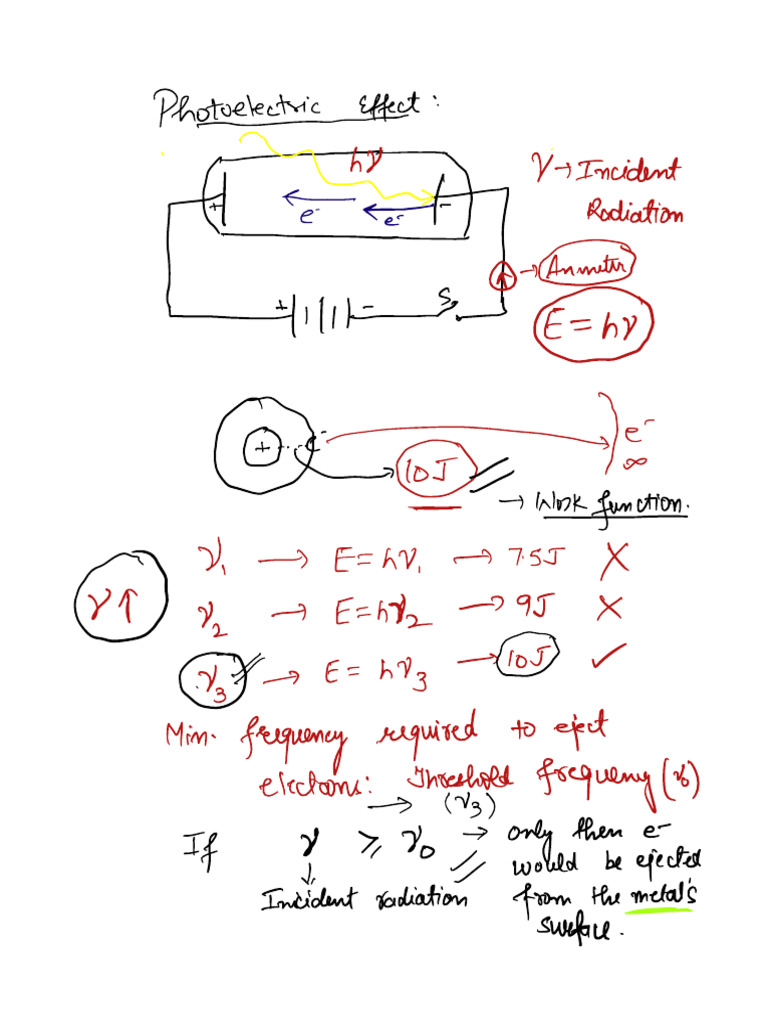 Photoelectric Effect:
hν
ν → Incident
Radiation
+ e⁻ e⁻ -
→ Ammeter
+ - S
E = hν
+ e⁻ e⁻
∞
10J
→ Work function.
ν₁ → E = hν₁ → 7.5J ✗
ν↑
ν₂ → E = hν₂ → 9J ✗
ν₃ → E = hν₃ → 10J ✓
Min. frequency required to eject
electrons: Threshold frequency (ν₀)
→ (ν₃)
If ν ≥ ν₀ → only then e⁻
would be ejected
Incident radiation from the metal's
surface.